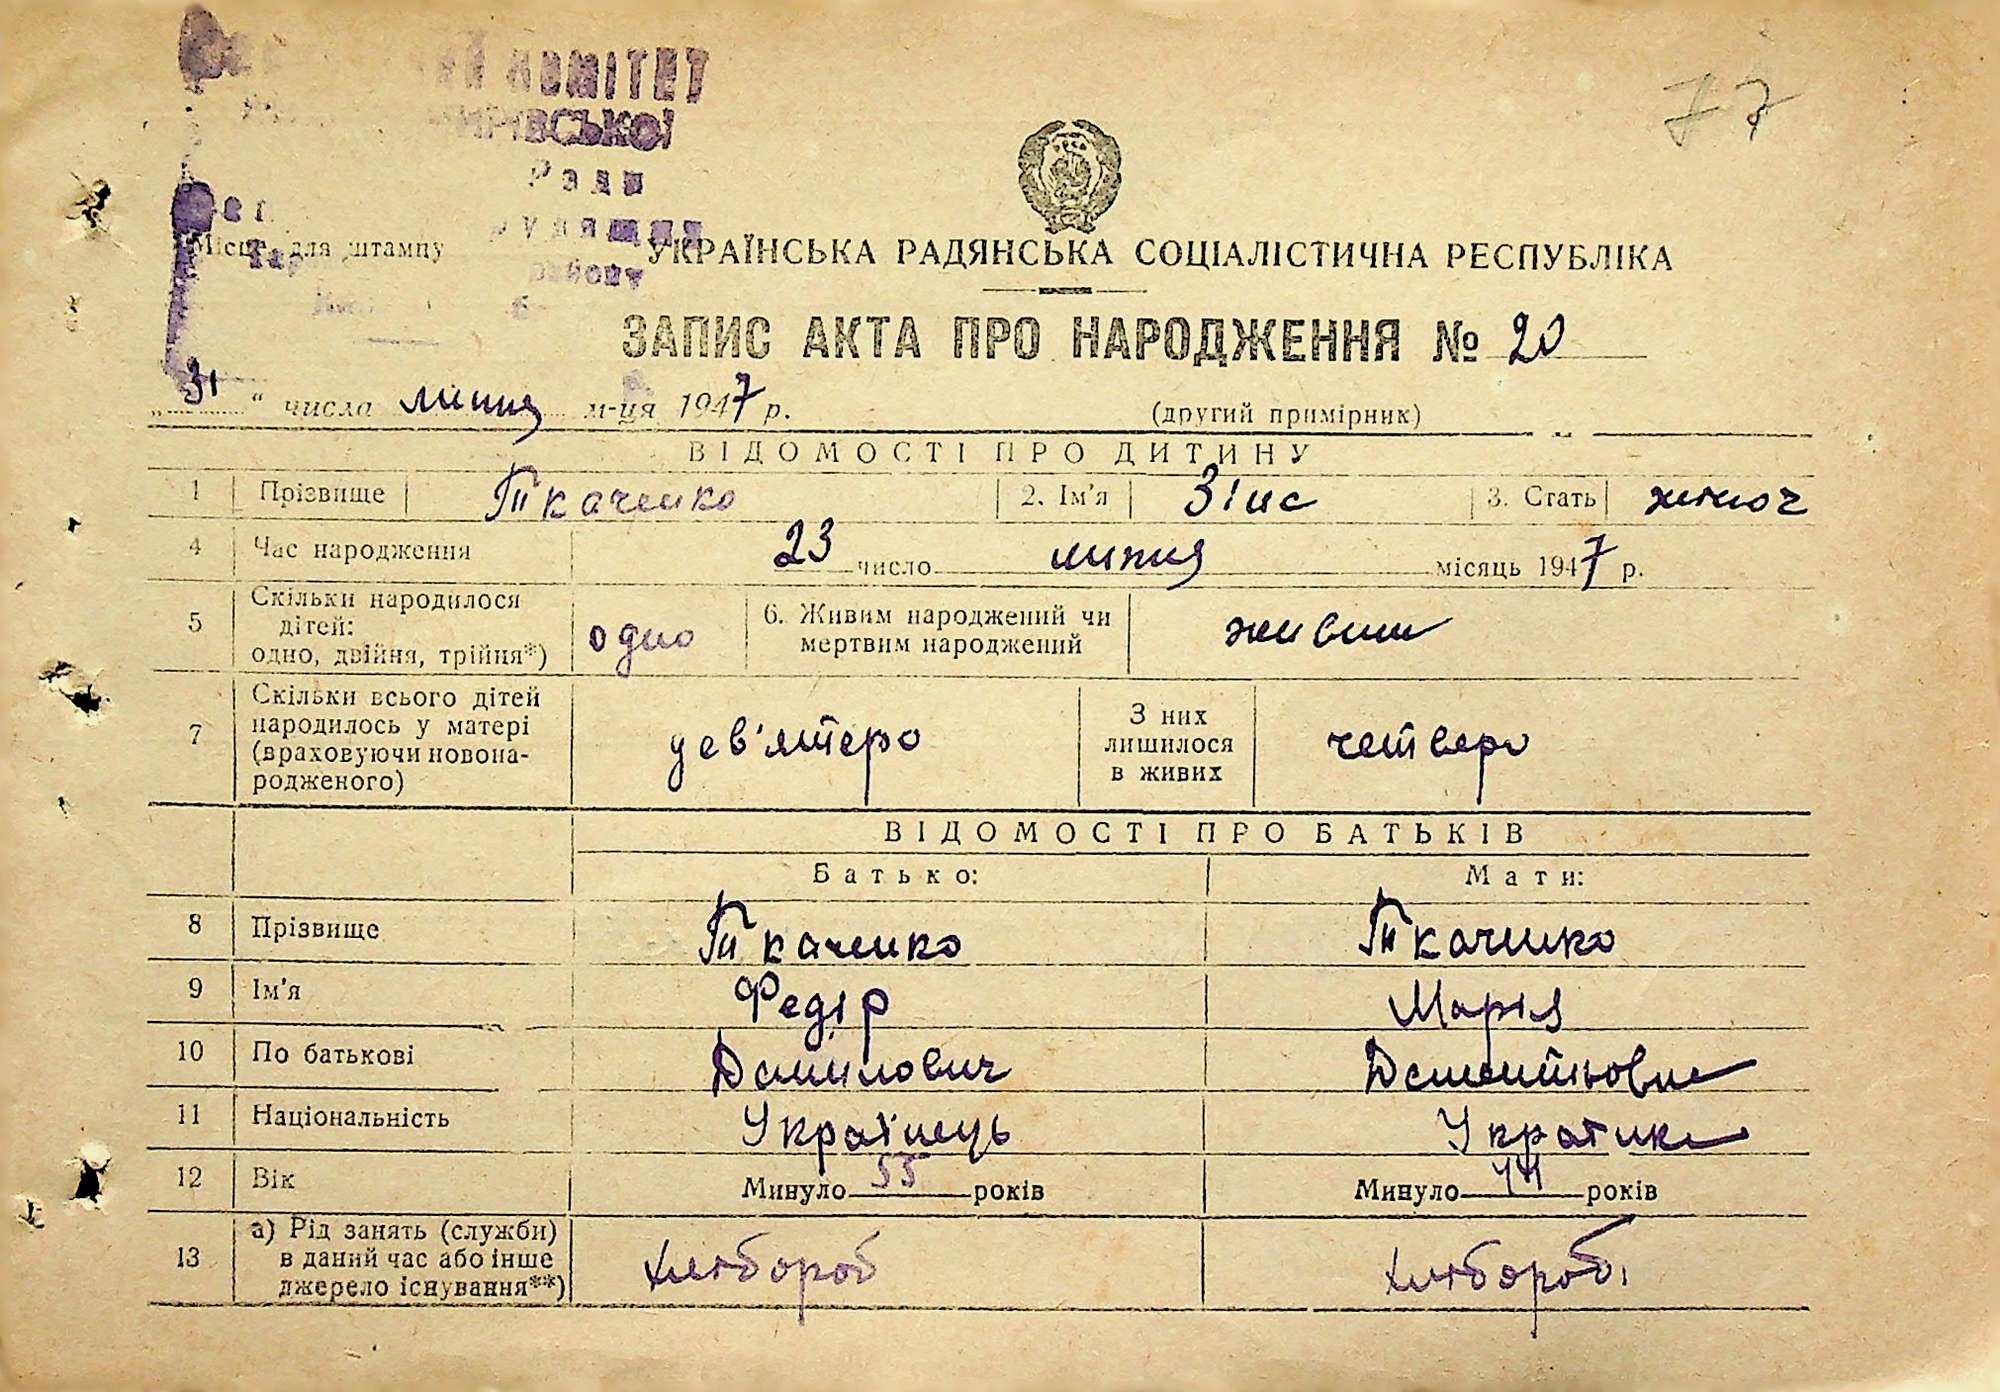 КОМІТЕТ
Ради
району
77
Місце для штампу
УКРАЇНСЬКА РАДЯНСЬКА СОЦІАЛІСТИЧНА РЕСПУБЛІКА
ЗАПИС АКТА ПРО НАРОДЖЕННЯ № 20
„31“ числа липня м-ця 1947 р. (другий примірник)
ВІДОМОСТІ ПРО ДИТИНУ
1 Прізвище Ткаченко 2. Ім'я Зіна 3. Стать жіноч
4 Час народження 23 число липня місяць 1947 р.
5 Скільки народилося дітей: одно, двійня, трійня*) одно 6. Живим народжений чи мертвим народжений живим
7 Скільки всього дітей народилось у матері (враховуючи новонародженого) дев'ятеро З них лишилося в живих четверо
ВІДОМОСТІ ПРО БАТЬКІВ
Батько: Мати:
8 Прізвище Ткаченко Ткаченко
9 Ім'я Федір Марія
10 По батькові Данилович Дементьовна
11 Національність Українець Українка
12 Вік Минуло 55 років Минуло 44 років
13 а) Рід занять (служби) в даний час або інше джерело існування**) хлібороб хлібороб